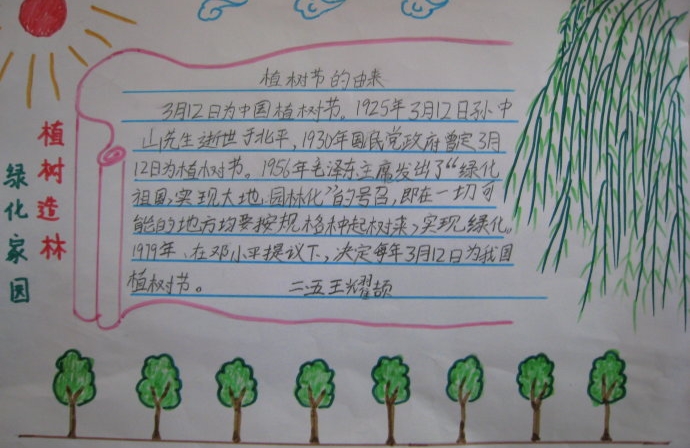 植树造林
绿化家园
植树节的由来
3月12日为中国植树节。1925年3月12日孙中
山先生逝世于北平,1930年国民党政府曾定3月
12日为植树节。1956年毛泽东主席发出了“绿化
祖国,实现大地园林化”的号召,即在一切可
能的地方均要按规格种起树来,实现绿化。
1979年、在邓小平提议下,决定每年3月12日为我国
植树节。
三.五王耀颉